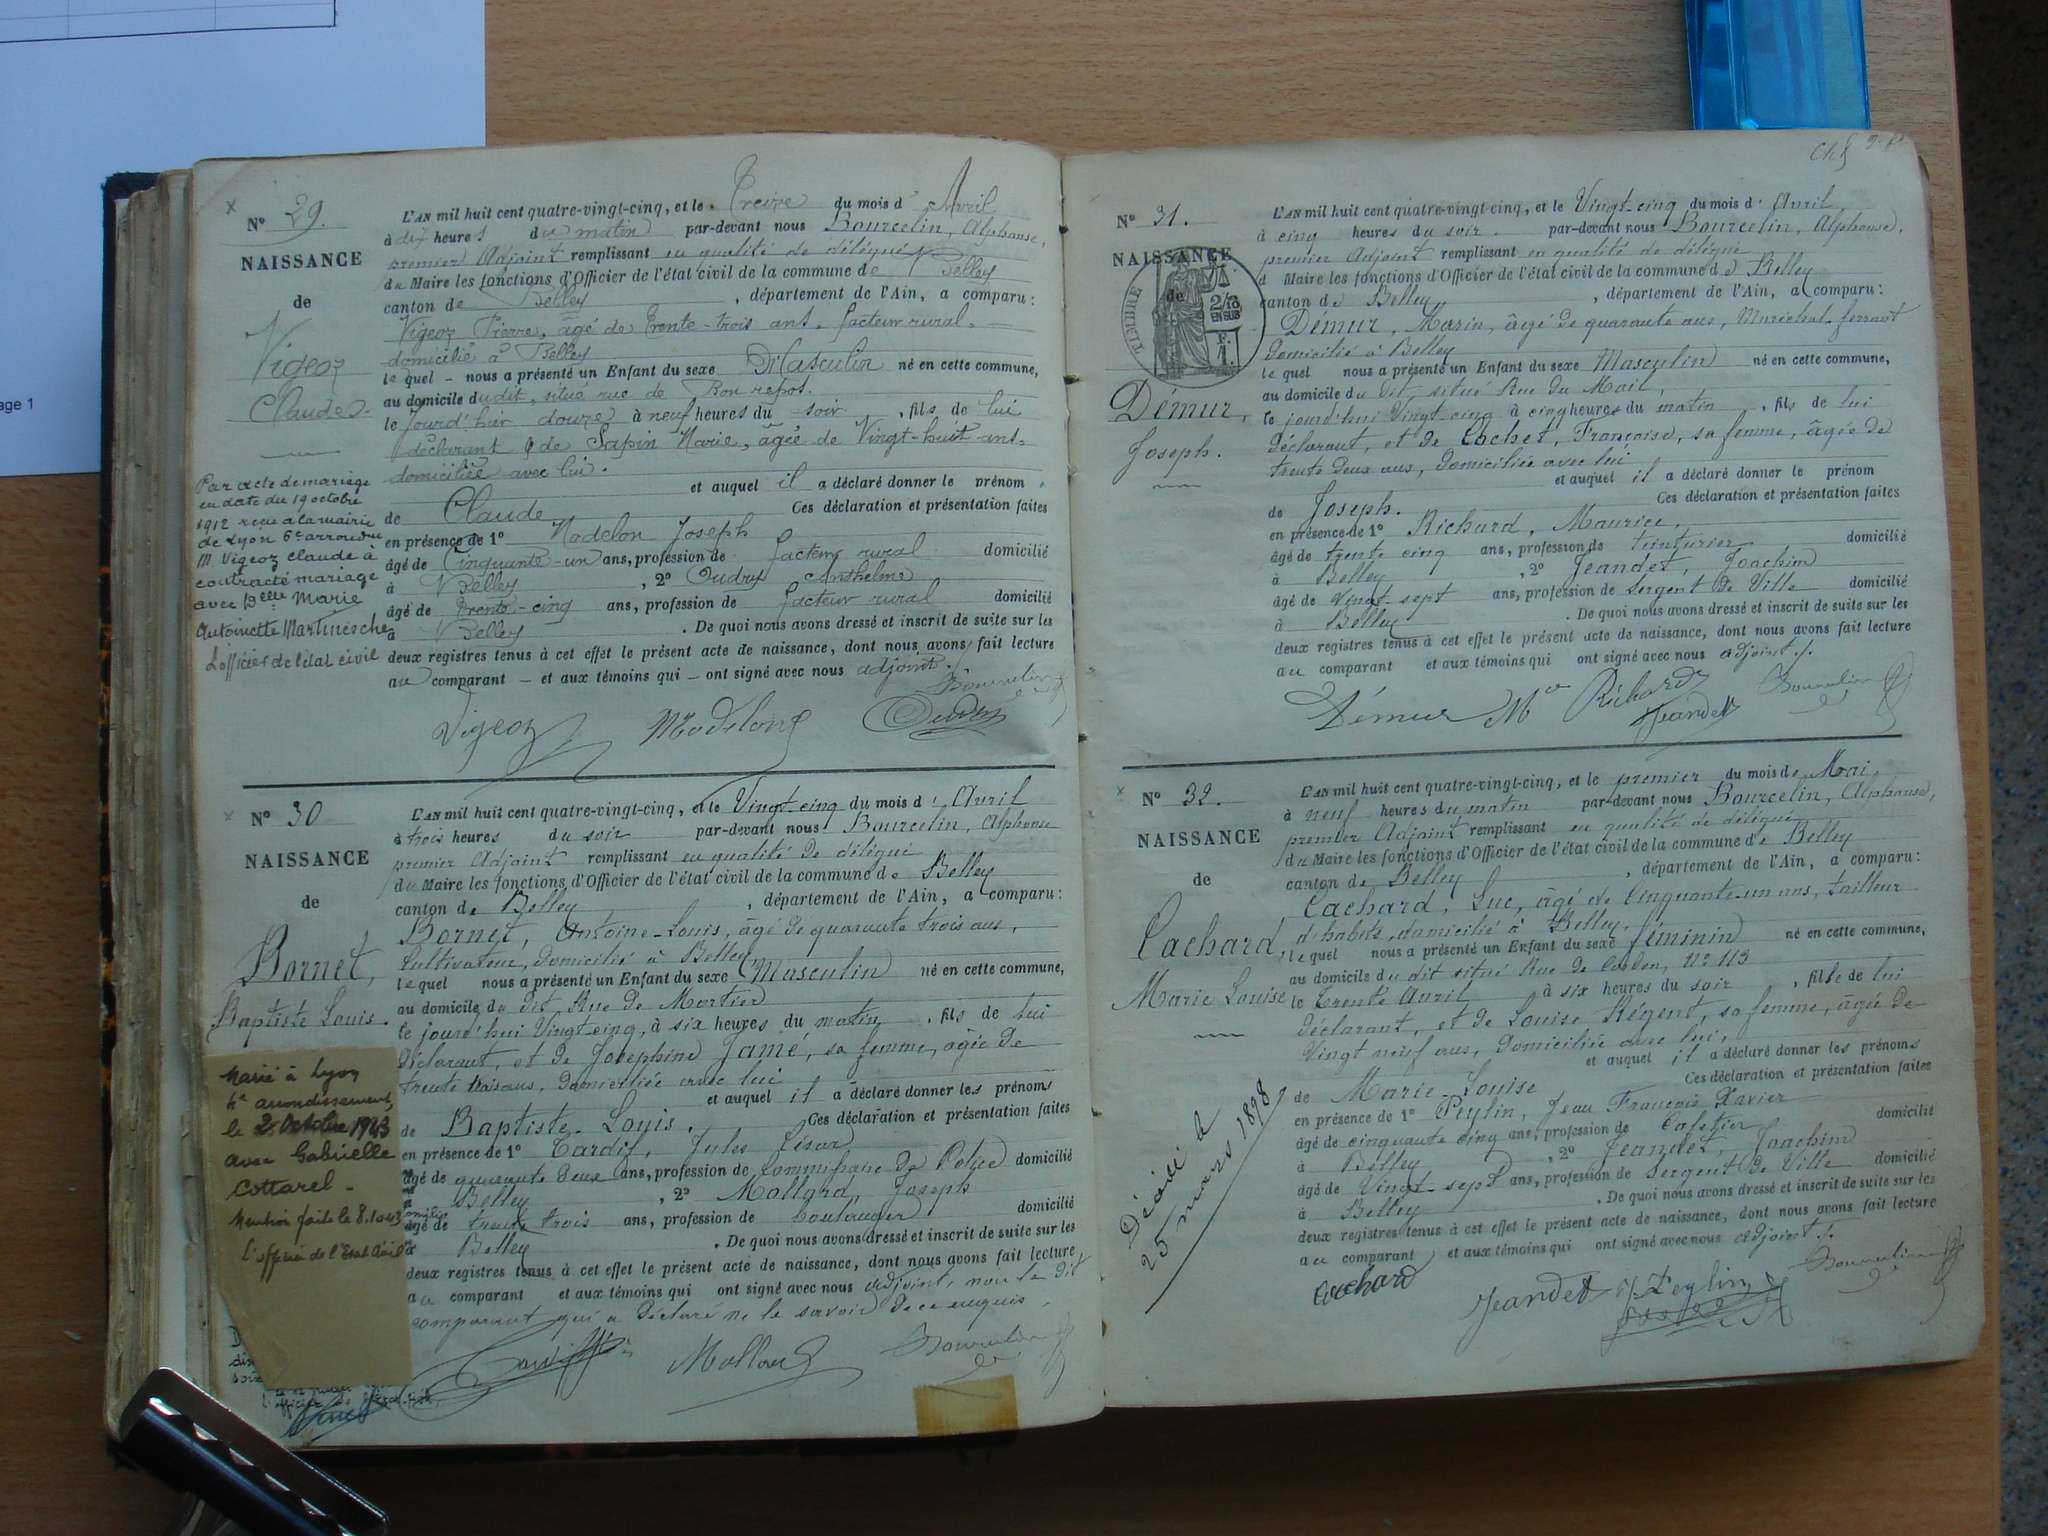 age 1
N° 29.
NAISSANCE
de
Vigeoz
Claude.
Par acte de mariage
en date du 19 octobre
1912 reçu a la mairie
de Lyon 6e arrondnt
M Vigeoz Claude à
contracté mariage
avec Delle Marie
Antoinette Martinesche
L'officier de l'état civil
L'AN mil huit cent quatre-vingt-cinq, et le Treize du mois d' Avril
à dix heures du matin par-devant nous Bourcelin, Alphonse,
premier Adjoint remplissant en qualité de délégué
du Maire les fonctions d'Officier de l'état civil de la commune de Belley
canton de Belley, département de l'Ain, a comparu :
Vigeoz Pierre, âgé de Trente-trois ans, facteur rural,
domicilié à Belley
lequel nous a présenté un Enfant du sexe Masculin né en cette commune,
au domicile dudit, située rue de Bon repos.
le jourd'hier douze à neuf heures du soir, fils de lui
déclarant & de Sapin Marie, âgée de Vingt-huit ans,
domiciliée avec lui.
et auquel il a déclaré donner le prénom
de Claude Ces déclaration et présentation faites
en présence de 1° Modelon Joseph
âgé de Cinquante-un ans, profession de facteur rural domicilié
à Belley, 2° Oudry Anthelme
âgé de Trente-cinq ans, profession de facteur rural domicilié
à Belley. De quoi nous avons dressé et inscrit de suite sur les
deux registres tenus à cet effet le présent acte de naissance, dont nous avons fait lecture
au comparant - et aux témoins qui - ont signé avec nous adjoint./.
Vigeoz Modelon Oudry Bourcelin
N° 30
NAISSANCE
de
Bornet,
Baptiste Louis.
Marié à Lyon
4e arrondissement,
le 2 Octobre 1943
avec Gabrielle
Cottarel -
Mention faite le 8.10.43
L'officier de l'Etat Civil
L'AN mil huit cent quatre-vingt-cinq, et le Vingt-cinq du mois d' Avril
à trois heures du soir par-devant nous Bourcelin, Alphonse
premier Adjoint remplissant en qualité de délégué
du Maire les fonctions d'Officier de l'état civil de la commune de Belley
canton de Belley, département de l'Ain, a comparu :
Bornet, Antoine-Louis, âgé de quarante trois ans,
Cultivateur, domicilié à Belley,
lequel nous a présenté un Enfant du sexe Masculin né en cette commune,
au domicile du dit Rue de Mortier
le jourd'hui Vingt cinq, à six heures du matin, fils de lui
Déclarant, et de Josephine Jamé, sa femme, âgée de
trente trois ans, domiciliée avec lui
et auquel il a déclaré donner les prénoms
de Baptiste-Louis. Ces déclaration et présentation faites
en présence de 1° Tardif, Jules César
âgé de quarante deux ans, profession de Commissaire de Police domicilié
à Belley, 2° Mollard, Joseph
âgé de trente trois ans, profession de boulanger domicilié
à Belley. De quoi nous avons dressé et inscrit de suite sur les
deux registres tenus à cet effet le présent acte de naissance, dont nous avons fait lecture
au comparant et aux témoins qui ont signé avec nous adjoint, non le dit
comparant qui a déclaré ne le savoir de ce enquis.
Tardif Mollard Bourcelin
N° 31.
NAISSANCE
de
TIMBRE
2/10
EN SUS
F.
1.
Démur,
Joseph.
L'AN mil huit cent quatre-vingt-cinq, et le Vingt-cinq du mois d' Avril
à cinq heures du soir par-devant nous Bourcelin, Alphonse,
premier Adjoint remplissant en qualité de délégué
d Maire les fonctions d'Officier de l'état civil de la commune de Belley
canton de Belley, département de l'Ain, a comparu :
Démur, Marin, âgé de quarante ans, Maréchal-ferrant
domicilié à Belley
lequel nous a présenté un Enfant du sexe Masculin né en cette commune,
au domicile du dit, situé Rue du Mail,
le jourd'hui Vingt-cinq à cinq heures du matin, fils de lui
déclarant, et de Cochet, Françoise, sa femme, âgée de
trente deux ans, domiciliée avec lui
et auquel il a déclaré donner le prénom
de Joseph. Ces déclaration et présentation faites
en présence de 1° Richard, Maurice,
âgé de trente cinq ans, profession de teinturier domicilié
à Belley, 2° Jeandet, Joachim
âgé de vingt-sept ans, profession de Sergent de Ville domicilié
à Belley. De quoi nous avons dressé et inscrit de suite sur les
deux registres tenus à cet effet le présent acte de naissance, dont nous avons fait lecture
au comparant et aux témoins qui ont signé avec nous adjoint./.
Démur Mce Richard Jeandet Bourcelin
N° 32.
NAISSANCE
de
Cachard,
Marie Louise
Décédé le
25 mars 1898
L'AN mil huit cent quatre-vingt-cinq, et le premier du mois de Mai,
à neuf heures du matin par-devant nous Bourcelin, Alphonse,
premier Adjoint remplissant en qualité de délégué
du Maire les fonctions d'Officier de l'état civil de la commune de Belley
canton de Belley, département de l'Ain, a comparu :
Cachard, Luc, âgé de Cinquante-un ans, tailleur
d'habits, domicilié à Belley,
lequel nous a présenté un Enfant du sexe féminin né en cette commune,
au domicile du dit situé Rue de Cordon, n° 113
le Trente Avril à six heures du soir, fille de lui
déclarant, et de Louise Régent, sa femme, âgée de
Vingt neuf ans, domiciliée avec lui,
et auquel il a déclaré donner les prénoms
de Marie-Louise Ces déclaration et présentation faites
en présence de 1° Peylin, Jean François Xavier
âgé de cinquante cinq ans, profession de Cafetier domicilié
à Belley, 2° Jeandet, Joachim
âgé de Vingt-sept ans, profession de Sergent de Ville domicilié
à Belley. De quoi nous avons dressé et inscrit de suite sur les
deux registres tenus à cet effet le présent acte de naissance, dont nous avons fait lecture
au comparant et aux témoins qui ont signé avec nous adjoint./.
Cachard Jeandet Peylin Bourcelin